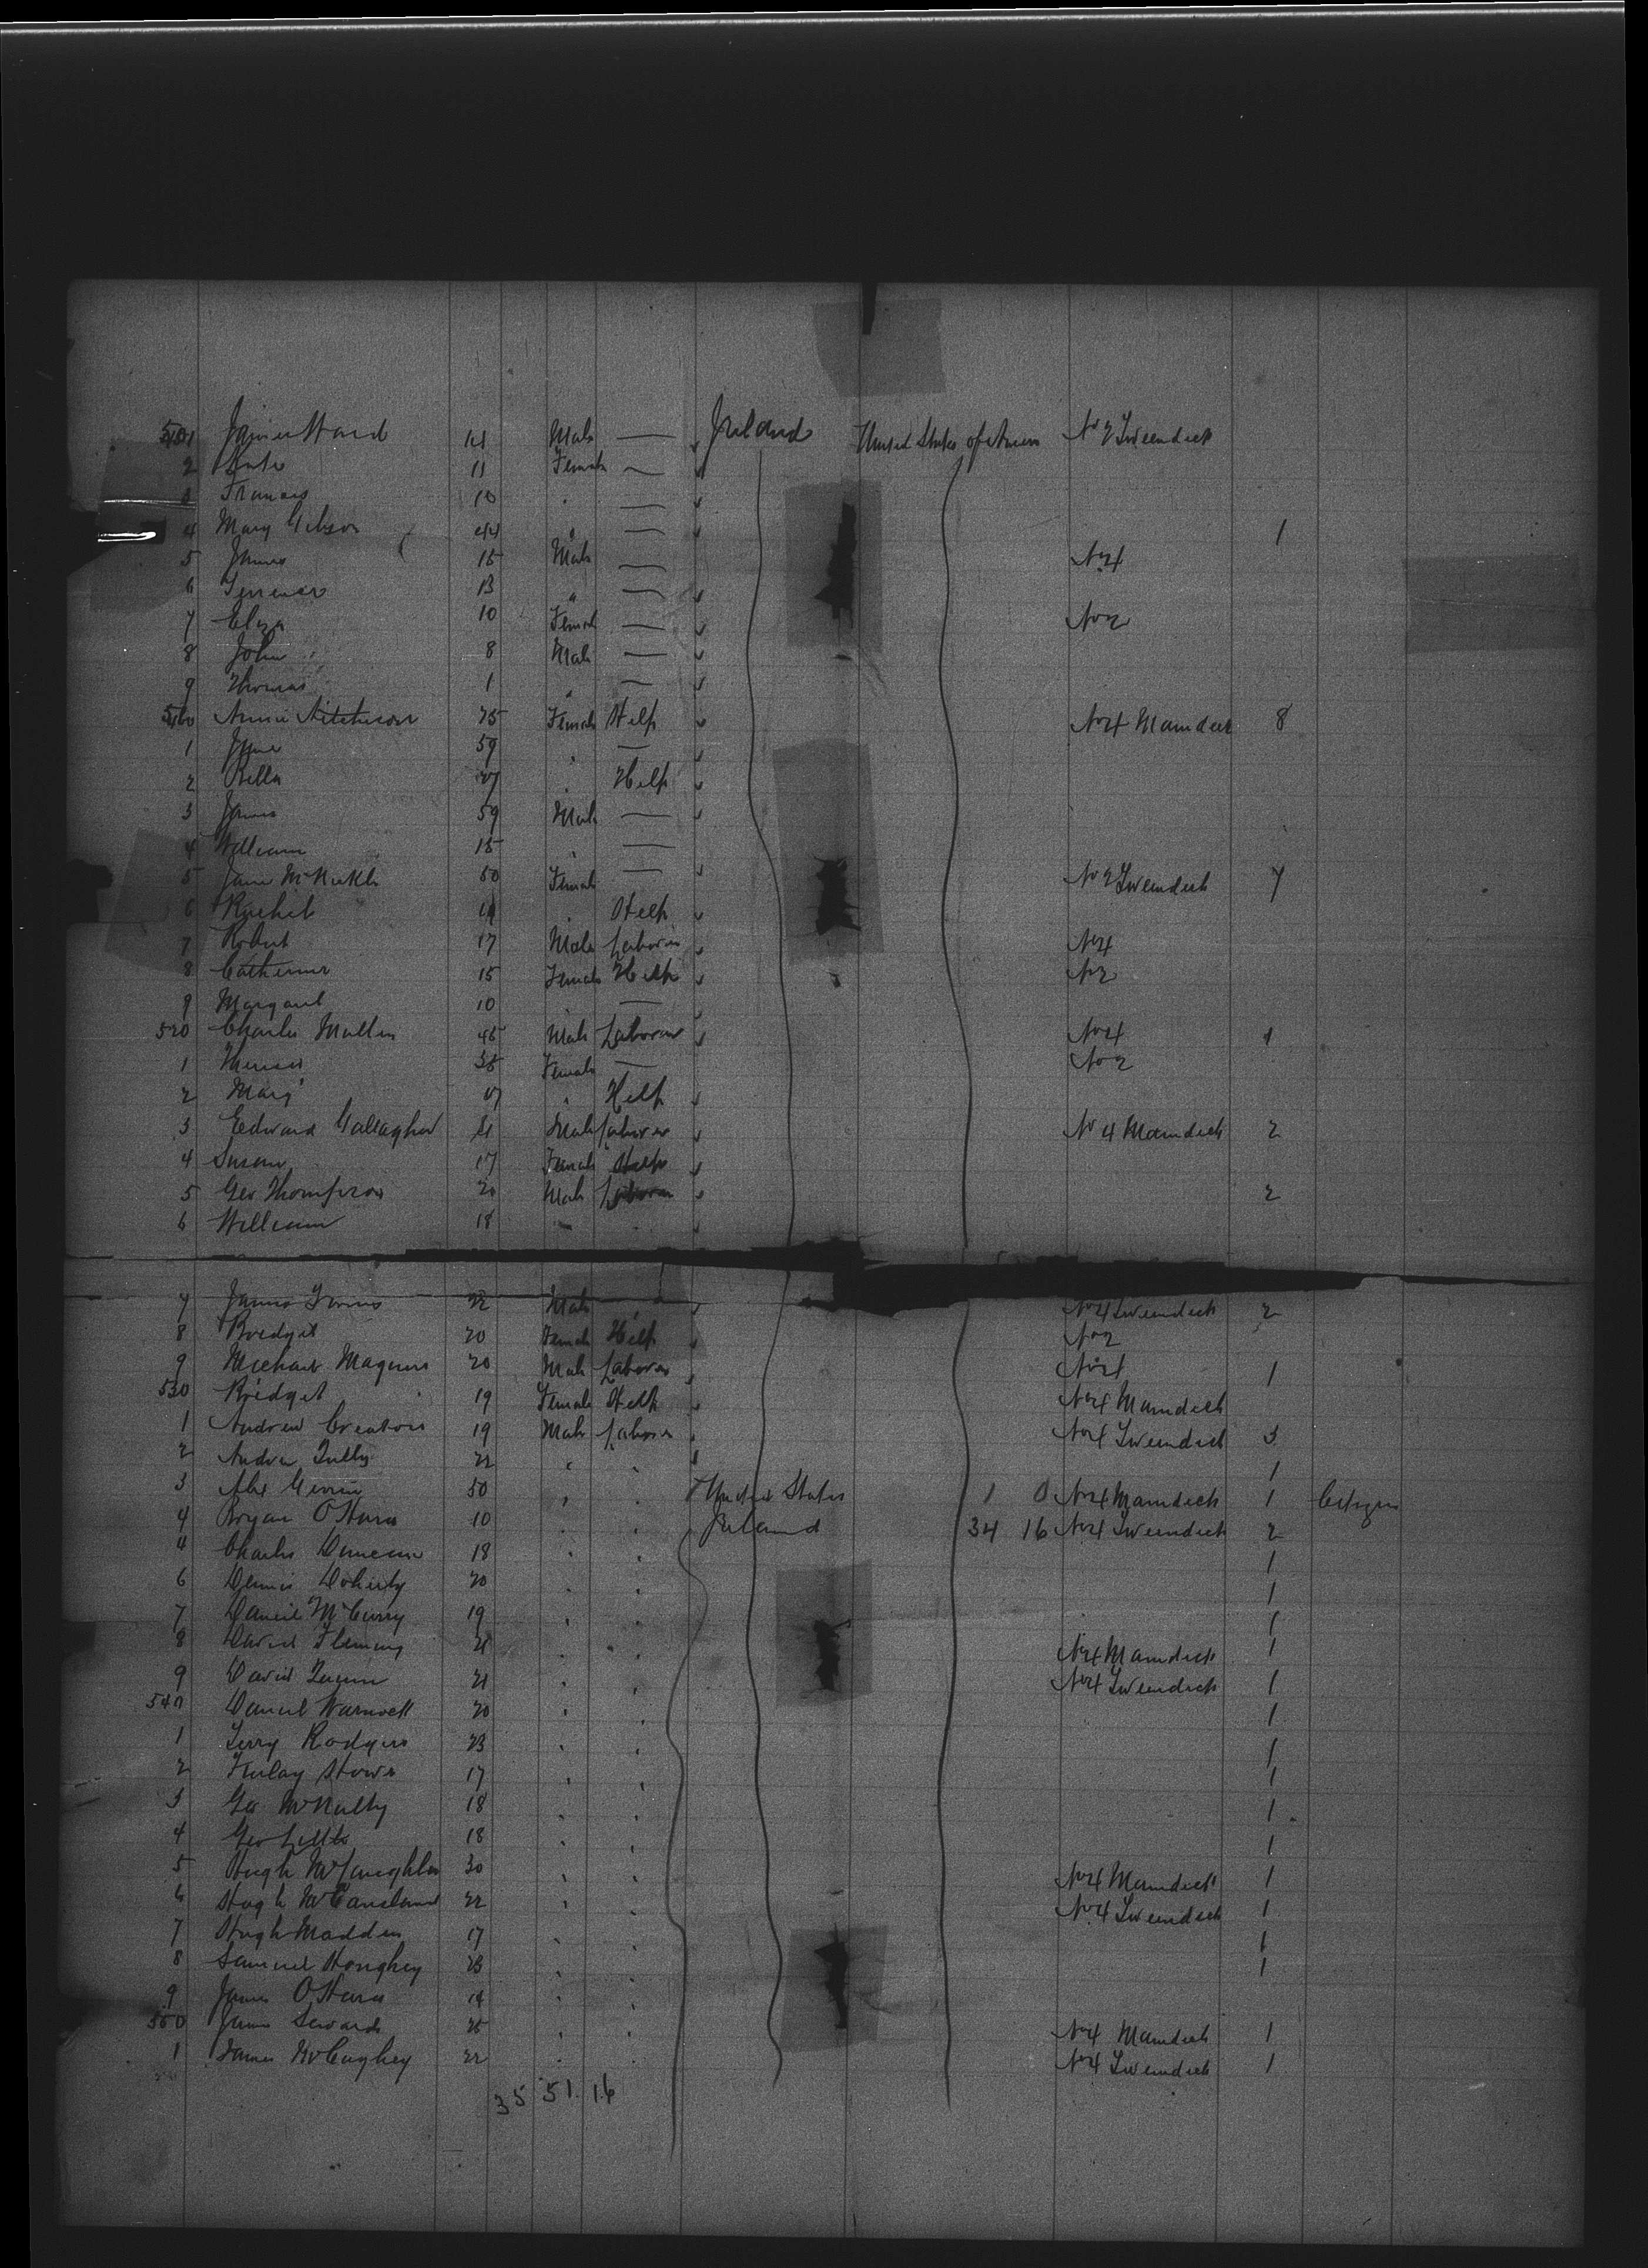 501 James Ward 14 Male — Ireland United States of Ameri No 2 Tweendeck
2 Kate 11 Female —
3 Frances 10 " —
4 Mary Gibson 44 " — 1
5 James 15 Male — No 4
6 Terrence 13 " —
7 Eliza 10 Female — No 2
8 John 8 Male —
9 Thomas 1 " —
510 Annie Aitcheson 25 Female Help No 4 Maindeck 8
1 Jane 59 " —
2 Bella 27 " Help
3 James 59 Male —
4 William 15 " —
5 Jane McNickle 50 Female — No 2 Tweendeck 7
6 Rachel " Help
7 Robert 17 Male Laborer No 4
8 Catherine 15 Female Help No 2
9 Margaret 10 " —
520 Charles Mullen 45 Male Laborer No 4 1
1 38 Female — No 2
2 Mary 17 " Help
3 Edward Gallagher 21 Male Laborer No 4 Maindeck 2
4 Susan 17 Female Help
5 Geo Thompson 20 Male Laborer 2
6 William 18 " "
7 James 22 Male " No 4 Tweendeck 2
8 Bridget 20 Female Help No 2
9 Michael Maguire 20 Male Laborer No 4 1
530 Bridget 19 Female Help No 4 Maindeck
1 Andrew Creaton 19 Male Laborer No 4 Tweendeck 3
2 Andrew Tully 22 " " 1
3 Alex 50 " " United States 1 0 No 4 Maindeck 1 Citizen
4 Bryan O'Hara 10 " " Ireland 34 16 No 4 Tweendeck 2
4 Charles Duncan 18 " " 1
6 Dennis Doherty 20 " " 1
7 Daniel McCurry 19 " " 1
8 David Fleming 21 " " No 4 Maindeck 1
9 David Quinn 21 " " No 4 Tweendeck 1
540 Daniel Warnock 20 " " 1
1 Terry Rodgers 23 " " 1
2 Finlay 17 " " 1
3 Geo McNulty 18 " " 1
4 Geo 18 " " 1
5 Hugh McLaughlin 30 " " No 4 Maindeck 1
6 Hugh McCausland 22 " " No 4 Tweendeck 1
7 Hugh Madden 17 " " 1
8 Samuel Haughey 23 " " 1
9 James O'Hara 14 " "
550 James Seward 25 " " No 4 Maindeck 1
1 James McCaghey 22 " " No 4 Tweendeck 1
35 51 16